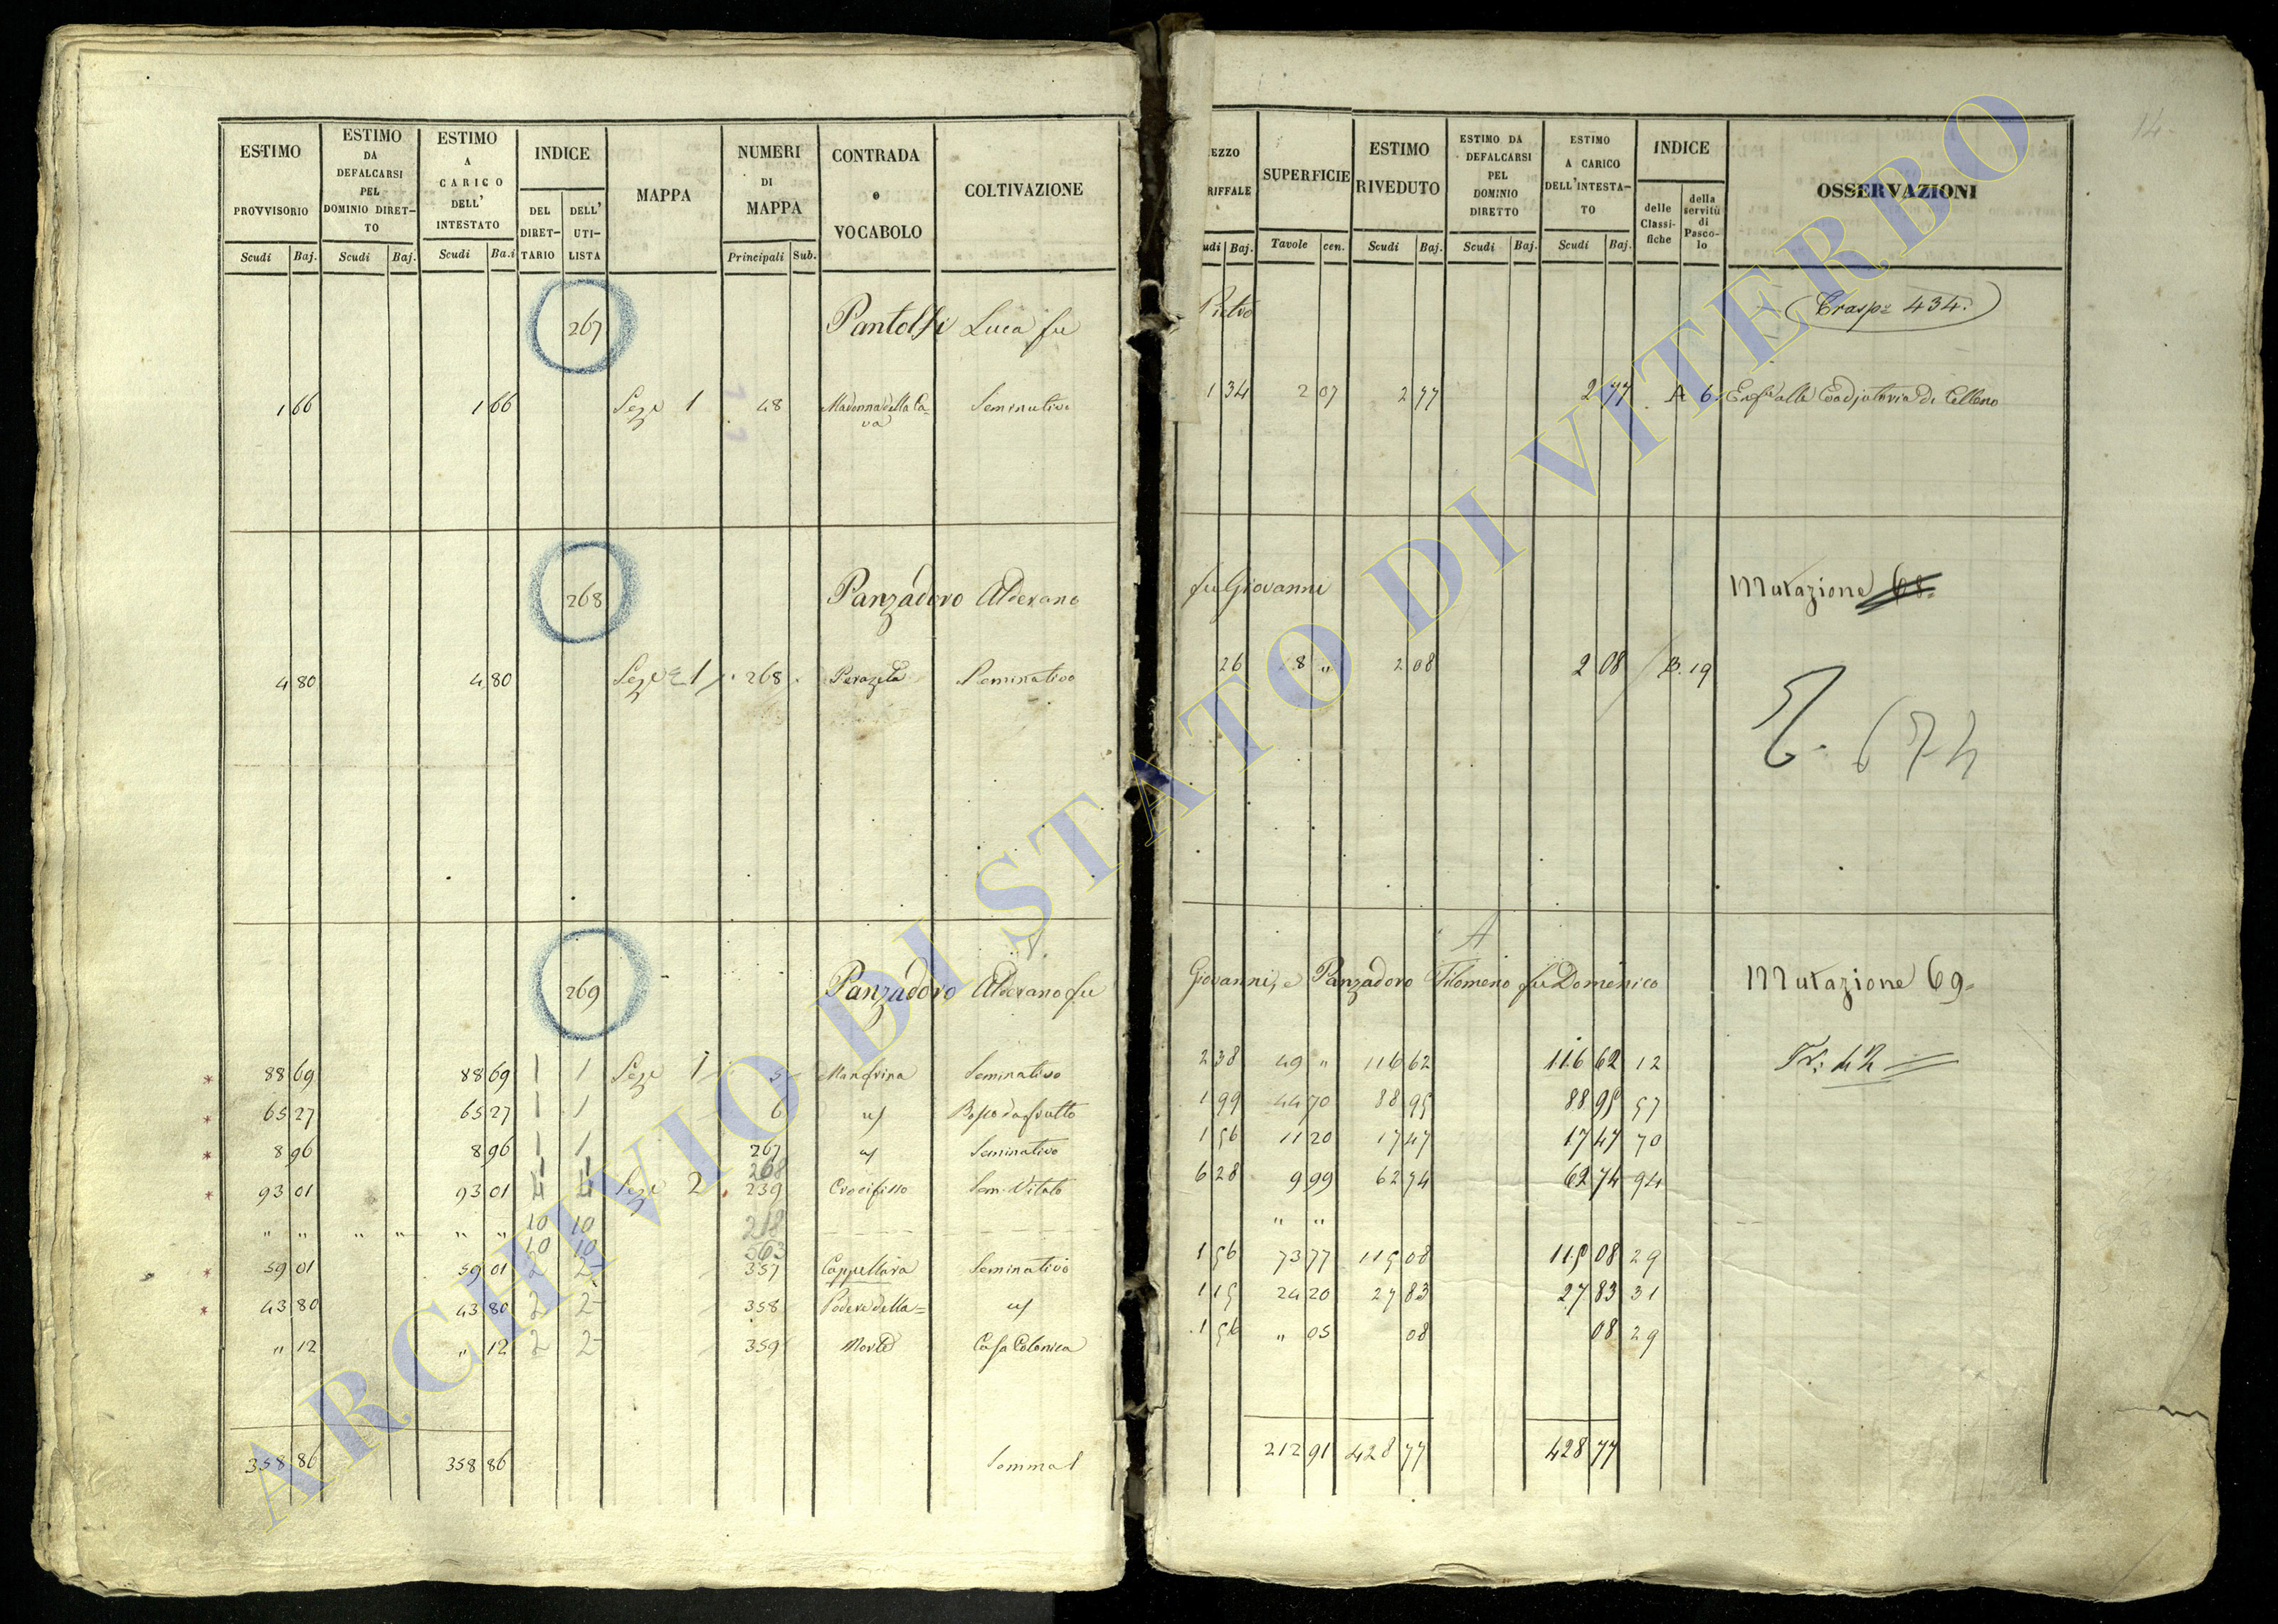 14
ESTIMO PROVVISORIO Scudi Baj.
ESTIMO DA DEFALCARSI PEL DOMINIO DIRET-TO Scudi Baj.
ESTIMO A CARICO DELL' INTESTATO Scudi Ba.i
INDICE DEL DIRET-TARIO DELL' UTI-LISTA
MAPPA
NUMERI DI MAPPA Principali Sub.
CONTRADA o VOCABOLO
COLTIVAZIONE
EZZO RIFFALE udi Baj.
SUPERFICIE Tavole cen.
ESTIMO RIVEDUTO Scudi Baj.
ESTIMO DA DEFALCARSI PEL DOMINIO DIRETTO Scudi Baj.
ESTIMO A CARICO DELL'INTESTA-TO Scudi Baj.
INDICE delle Classi-fiche della servitù di Pasco-lo
OSSERVAZIONI
267 Pantolfi Luca fu Pietro Trasp: 434.
1 66 1 66 Sez.e 1 48 Madonna della Ca=va Seminativo 1 34 2 07 2 77 2 77 A 6 Enf.a alla Coadjutoria di Celleno
268 Panzadoro Alderano fu Giovanni Mutazione 68=
4 80 4 80 Sez.e 1 268 Perazeta Seminativo 26 8 " 2 08 2 08 B. 19
T. 674
269 Panzadoro Alderano fu Giovanni, e Panzadoro Filomeno fu Domenico Mutazione 69=
88 69 88 69 1 1 Sez.e 1 5 Manfrina Seminativo 2 38 49 " 116 62 116 62 12
65 27 65 27 1 1 6 Bosco da frutto 1 99 44 70 88 95 88 95 57
8 96 8 96 1 1 267 Seminativo 1 56 11 20 17 47 17 47 70
268
93 01 93 01 Sez.e 2 239 Crocifisso Sem. Vitato 6 28 9 99 62 74 62 74 94
" " " " " " 10 10 218 " "
10 10 563
59 01 59 01 2 2 357 Cappellara Seminativo 1 56 73 77 115 08 115 08 29
43 80 43 80 2 2 358 Podere della= 1 15 24 20 27 83 27 83 31
" 12 " 12 2 2 359 Morte Casa Colonica 1 56 " 05 08 08 29
358 86 358 86 Somma 212 91 428 77 428 77
ARCHIVIO DI STATO DI VITERBO